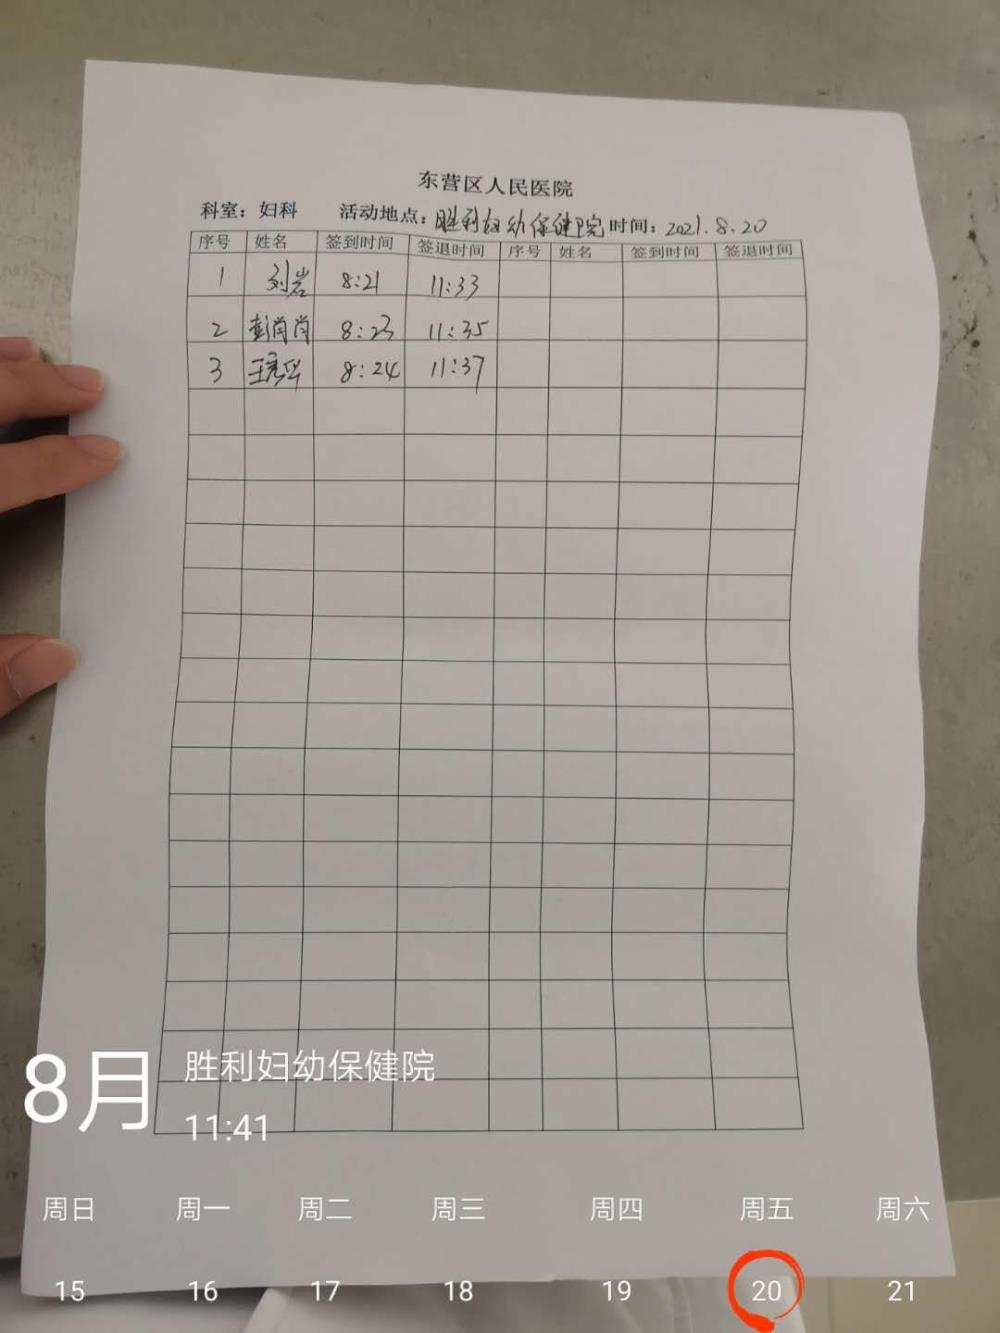 东营区人民医院
科室：妇科 活动地点：胜利妇幼保健院 时间：2021.8.20
序号 姓名 签到时间 签退时间 序号 姓名 签到时间 签退时间
1 刘岩 8:21 11:33
2 彭肖肖 8:23 11:35
3 王 8:24 11:37
8月 胜利妇幼保健院
11:41
周日 周一 周二 周三 周四 周五 周六
15 16 17 18 19 20 21